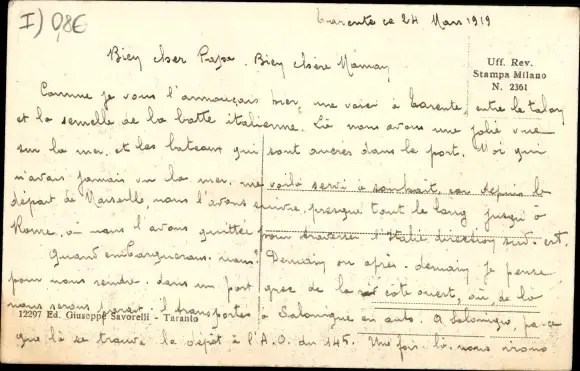 I) 0,8€
Tarente ce 24 Mars 1919
Uff. Rev.
Stampa Milano
N. 2361
Bien cher Papa. Bien chère Maman,
Comme je vous l'annonçais hier, me voici à Tarente, entre le talon
et la semelle de la botte italienne. Là nous avons une jolie vue
sur la mer, et les bateaux qui sont ancrés dans le port. Moi qui
n'avais jamais vu la mer, me voilà servi à souhait, car depuis le
départ de Marseille, nous l'avons suivie, presque tout le long, jusqu'à
Rome, où nous l'avons quittée pour traverser l'Italie direction sud-est.
Quand embarquerons-nous? Demain ou après-demain je pense
pour nous rendre dans un port grec de la côte ouest, où, de là
nous serons transportés à Salonique en auto. A Salonique, parce
12297 Ed. Giuseppe Savorelli - Taranto
que là se trouve le dépôt à l'A.O. du 145. Une fois là, nous irons